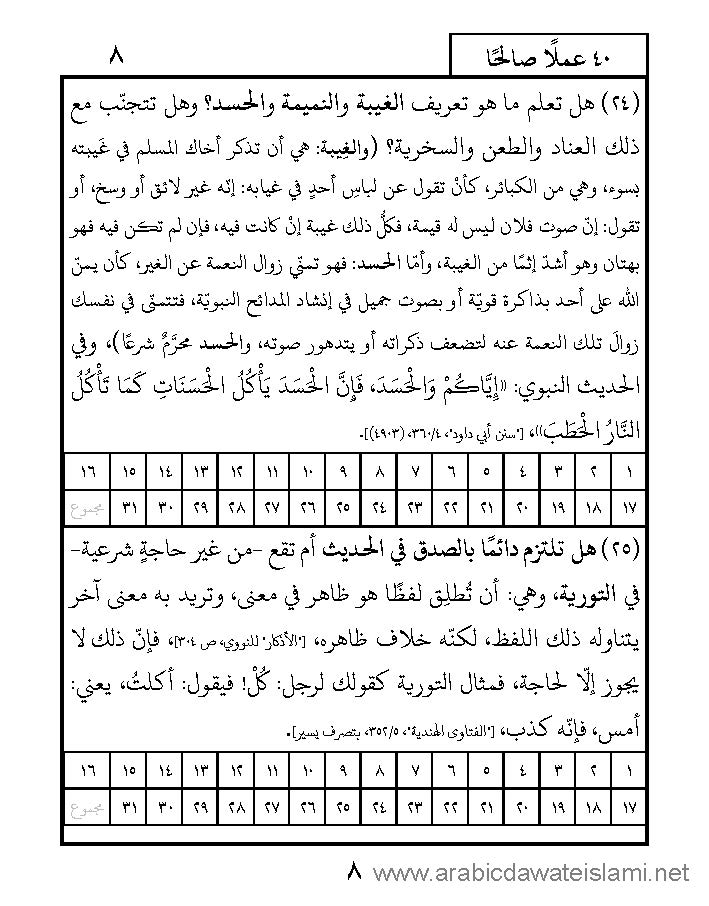 ٤٠ عملًا صالحًا
٨
(٢٤) هل تعلم ما هو تعريف الغيبة والنميمة والحسد؟ وهل تتجنّب مع
ذلك العناد والطعن والسخرية؟ (والغِيبة: هي أن تذكر أخاك المسلم في غَيبته
بسوء، وهي من الكبائر، كأنْ تقول عن لباسِ أحدٍ في غيابه: إنّه غير لائق أو وسخ، أو
تقول: إنّ صوت فلان ليس له قيمة، فكلُّ ذلك غيبة إنْ كانت فيه، فإن لم تكن فيه فهو
بهتان وهو أشدّ إثمًا من الغيبة، وأمّا الحسد: فهو تمنّي زوال النعمة عن الغير، كأن يمنّ
الله على أحد بذاكرة قويّة أو بصوت جميل في إنشاد المدائح النبويّة، فتتمنّى في نفسك
زوالَ تلك النعمة عنه لتضعف ذكراته أو يتدهور صوته، والحسد محرَّمٌ شرعًا)، وفي
الحديث النبوي: «إِيَّاكُمْ وَالْحَسَدَ، فَإِنَّ الْحَسَدَ يَأْكُلُ الْحَسَنَاتِ كَمَا تَأْكُلُ
النَّارُ الْحَطَبَ»، ["سنن أبي داود"، ٣٦٠/٤، (٤٩٠٣)].
١ ٢ ٣ ٤ ٥ ٦ ٧ ٨ ٩ ١٠ ١١ ١٢ ١٣ ١٤ ١٥ ١٦
١٧ ١٨ ١٩ ٢٠ ٢١ ٢٢ ٢٣ ٢٤ ٢٥ ٢٦ ٢٧ ٢٨ ٢٩ ٣٠ ٣١ مجموع
(٢٥) هل تلتزم دائمًا بالصدق في الحديث أم تقع -من غير حاجةٍ شرعية-
في التورية، وهي: أن تُطلِق لفظًا هو ظاهر في معنى، وتريد به معنى آخر
يتناوله ذلك اللفظ، لكنّه خلاف ظاهره، ["الأذكار" للنووي، ص ٣٠٤]، فإنّ ذلك لا
يجوز إلّا لحاجة، فمثال التورية كقولك لرجل: كُلْ! فيقول: أكلتُ، يعني:
أمس، فإنّه كذب، ["الفتاوى الهندية"، ٣٥٢/٥، بتصرف يسير].
١ ٢ ٣ ٤ ٥ ٦ ٧ ٨ ٩ ١٠ ١١ ١٢ ١٣ ١٤ ١٥ ١٦
١٧ ١٨ ١٩ ٢٠ ٢١ ٢٢ ٢٣ ٢٤ ٢٥ ٢٦ ٢٧ ٢٨ ٢٩ ٣٠ ٣١ مجموع
٨ www.arabicdawateislami.net